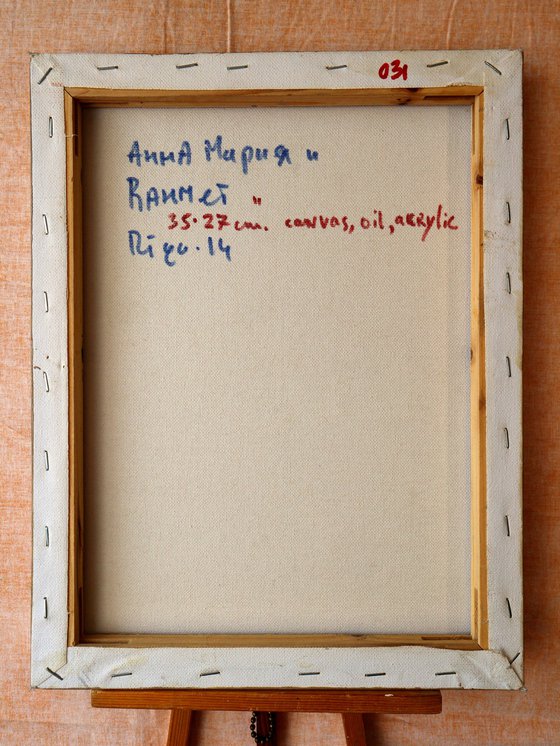 031
Анна Мария и
Вахмет "
35.27 cm. canvas, oil, akrylic
Riga.14